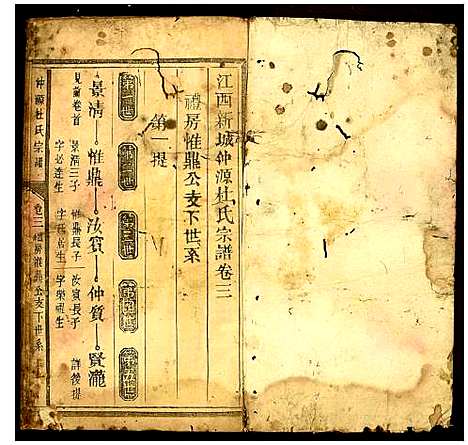 江西新城仲源杜氏宗譜卷三
禮房惟鼎公支下世系
第一提
景清 惟鼎 汝賓 仲質 賢瀧
見前卷首 景清三子 惟鼎長子 汝賓長子 詳後提
字必達生
仲源杜氏宗譜 卷三 禮房惟鼎公支下世系